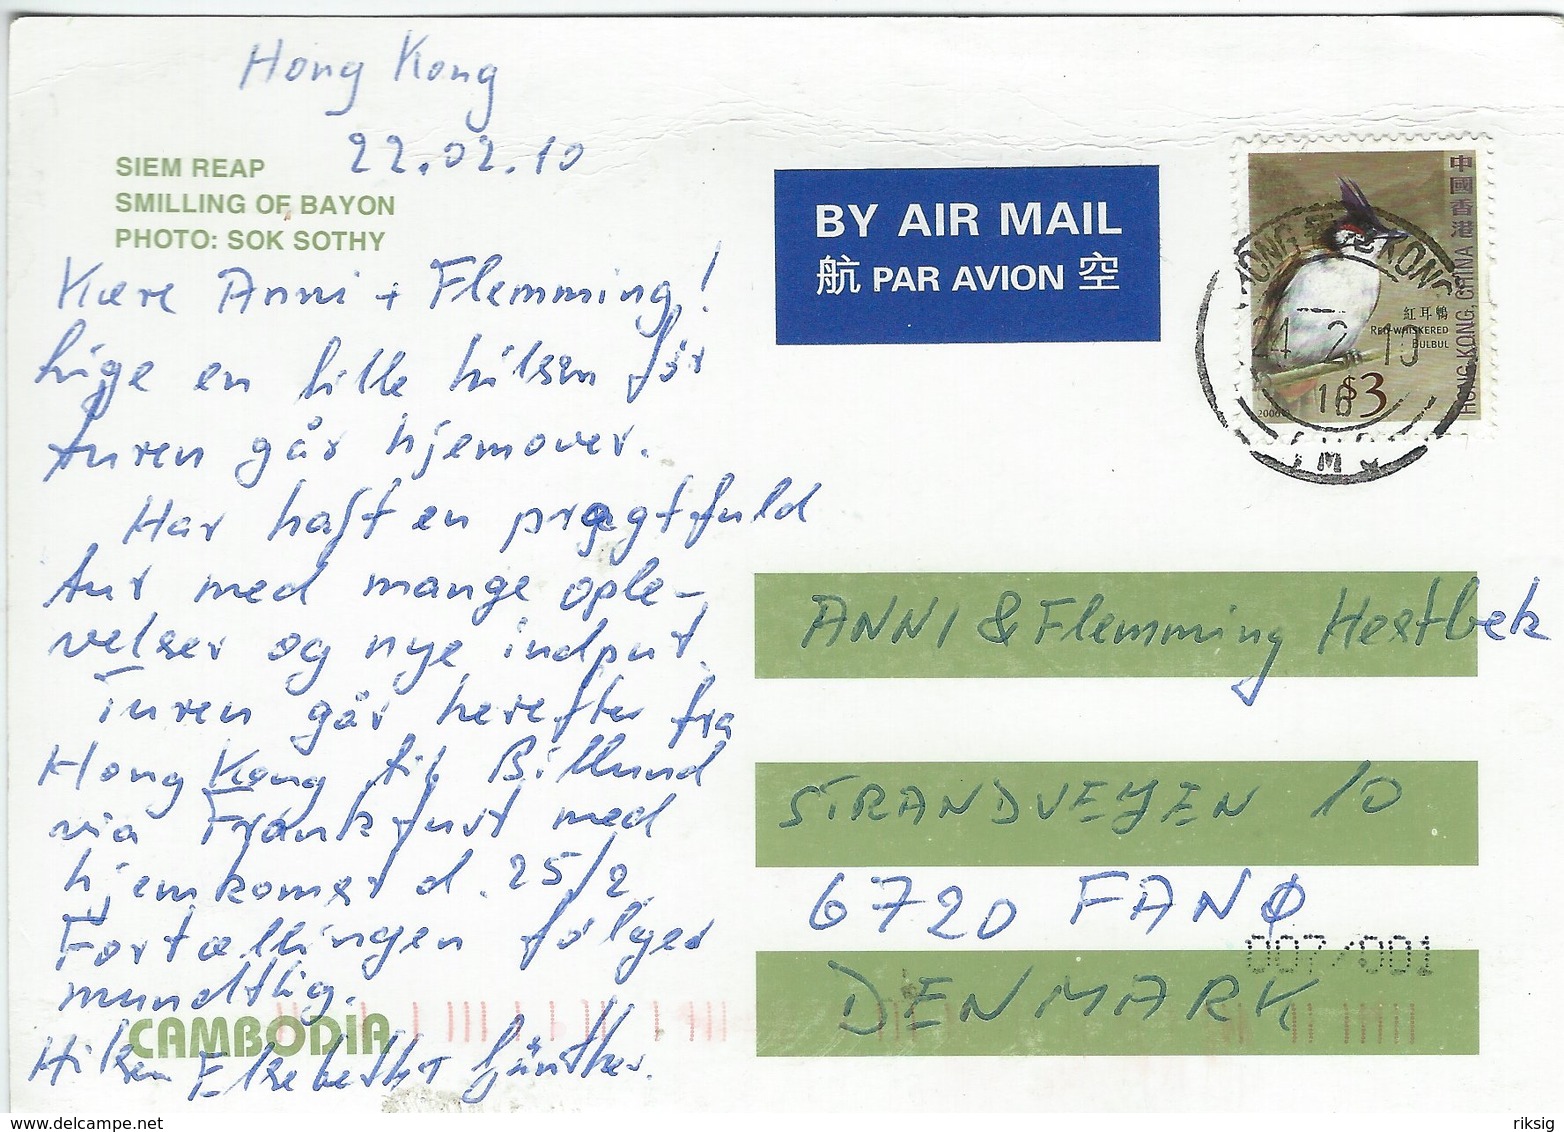 Hong Kong
22.02.10
SIEM REAP
SMILLING OF BAYON
PHOTO: SOK SOTHY
Kære Anni + Flemming!
Lige en lille hilsen før
turen går hjemover.
Har haft en prægtfuld
tur med mange ople-
velser og nye indput.
Turen går herefter fra
Hong Kong til Billund
via Frankfurt med
hjemkomst d. 25/2.
Fortællingen følger
mundtlig.
CAMBODIA
Hilsen Elsebeth + Günther.
BY AIR MAIL
航 PAR AVION 空
中國香港
HONG KONG, CHINA
紅耳鵯
RED-WHISKERED
BULBUL
$3
2006
HONG KONG
24 2 10
16
ANNI & Flemming Hestbek
STRANDVEJEN 10
6720 FANØ
007/001
DENMARK
www.delcampe.net
riksig